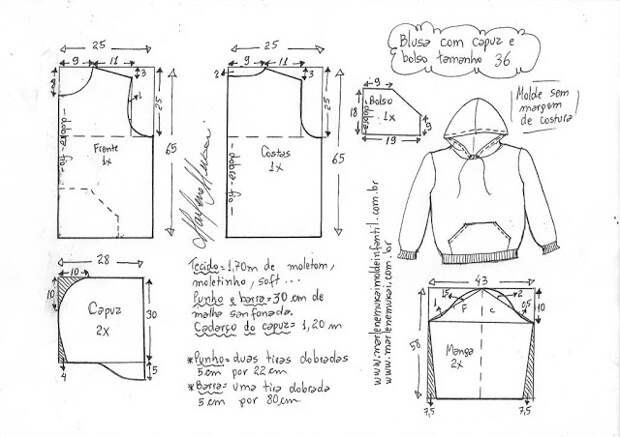 Blusa com capuz e
bolso tamanho 36
Molde sem
margem
de costura
25
9
11
3
1
25
65
dobra - fio - dobra
Frente
1x
25
9
11
2
3
25
65
dobra - fio - dobra
Costas
1x
9
18
Bolso
1x
dobra
9
19
28
10
10
Capuz
2x
30
4
5
Tecido = 1,70m de moletom,
moletinho, soft ...
Punho e barra = 30 cm de
malha sanfonada.
Cadarço do capuz = 1,20 m
*Punho = duas tiras dobradas
5 cm por 22 cm
*Barra = uma tira dobrada
5 cm por 80 cm
Marlene Mukai
www.marlenemukaimoldeinfantil.com.br
www.marlenemukai.com.br
43
1,5
F
C
2
0,5
10
58
Manga
2x
7,5
7,5